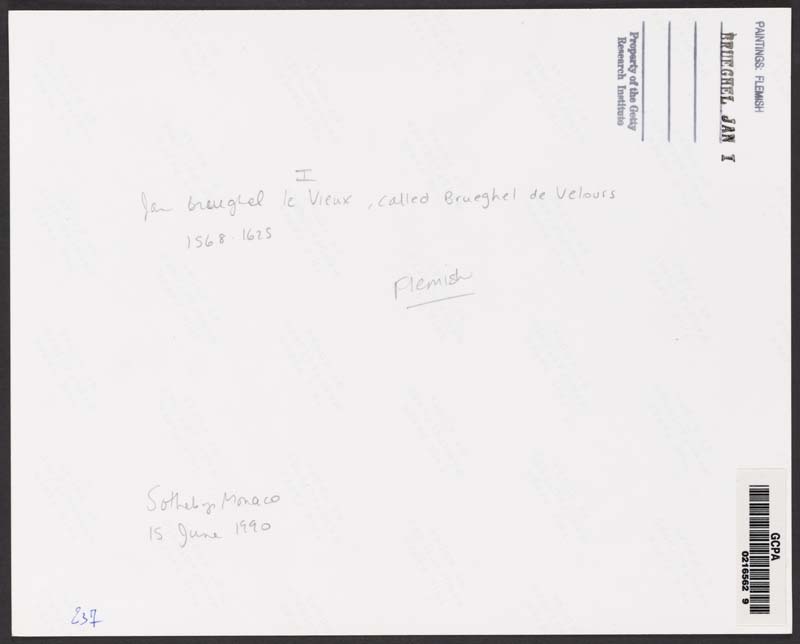 PAINTINGS: FLEMISH
BRUEGHEL JAN I
Property of the Getty
Research Institute
I
Jan Brueghel le Vieux, called Brueghel de Velours
1568-1625
Flemish
Sothebys Monaco
15 June 1990
237
GCPA
0216562 9